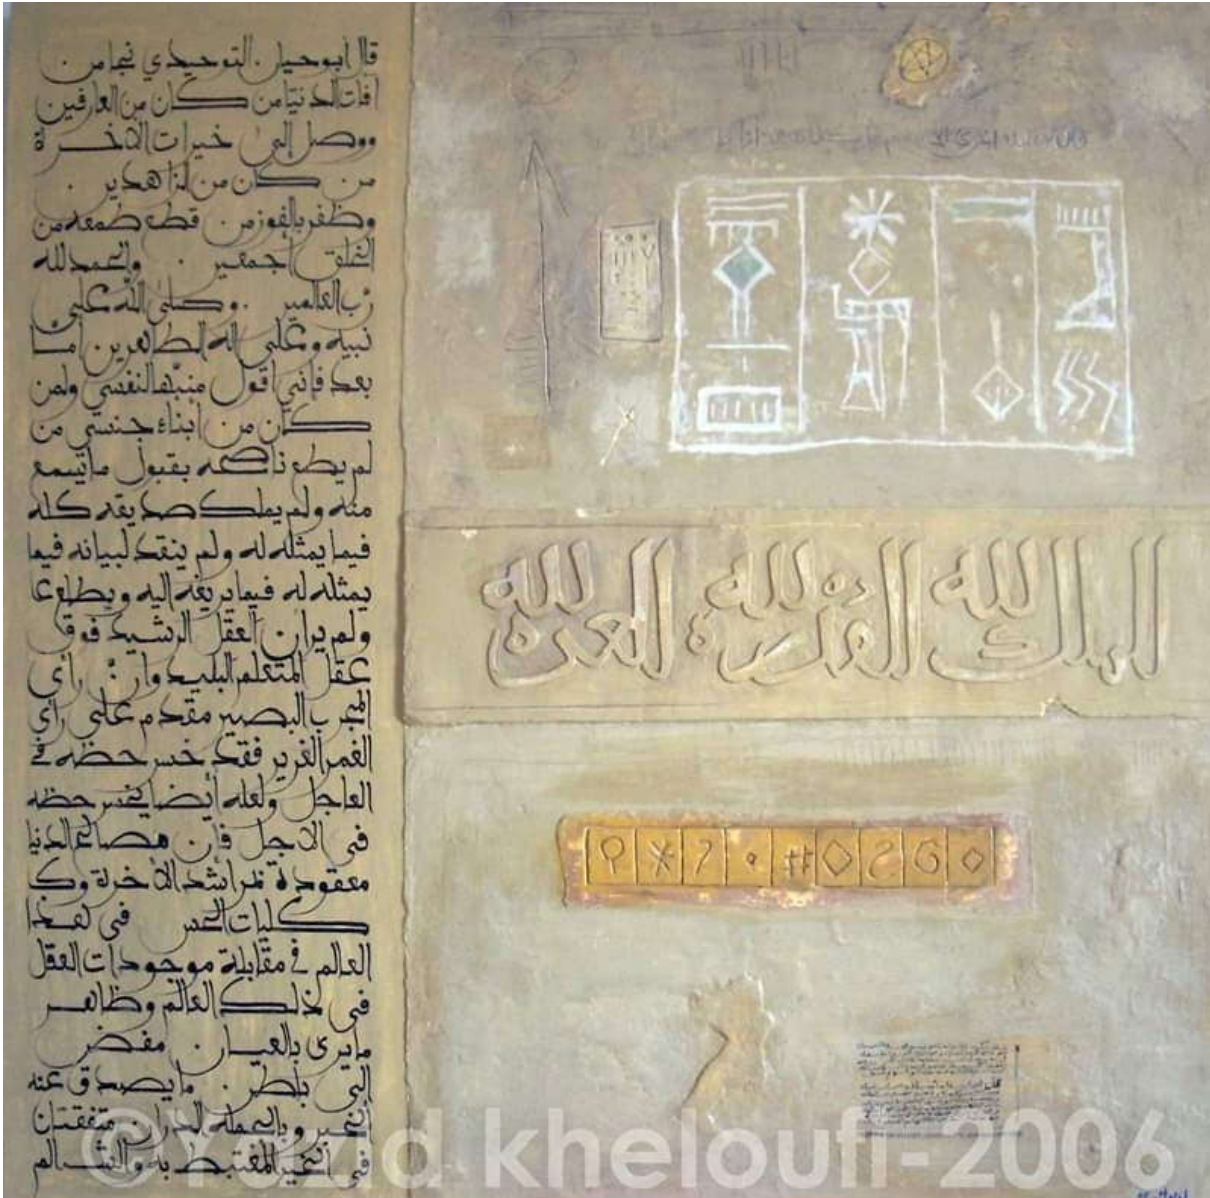 قال أبو حيان التوحيدي نجا من
آفات الدنيا من كان من العارفين
ووصل إلى خيرات الآخرة
من كان من الزاهدين
وظفر بالفوز من قطع طمعه من
الخلق أجمعين والحمد لله
رب العالمين وصلى الله على
نبيه وعلى اله الطاهرين أما
بعد فإني أقول منبها لنفسي ولمن
كان من أبناء جنسي من
لم يطع ناصحه بقبول ما يسمع
منه ولم يملك صديقه كله
فيما يمثله له ولم ينقد لبيانه فيما
يمثله له فيما يريغه إليه ويطلع عا
ولم ير ان العقل الرشيد فوق
عقل المتعلم البليد وان رأي
المجرب البصير مقدم على رأي
الغمر الغرير فقد خسر حظه في
العاجل ولعله أيضا يخسر حظه
في الآجل فأن مصالح الدنيا
معقودة بمراشد الآخرة وك
كليات الحس في هذا
العالم في مقابلة موجودات العقل
في ذلك العالم وظاهر
ما يرى بالعيان مفض
إلى باطن ما يصدق عنه
الخبر وبالجملة الداران متفقتان
في الخير المغتبط به والشـالم
الملك لله القدرة لله العزة لله
©Yazid kheloufi-2006